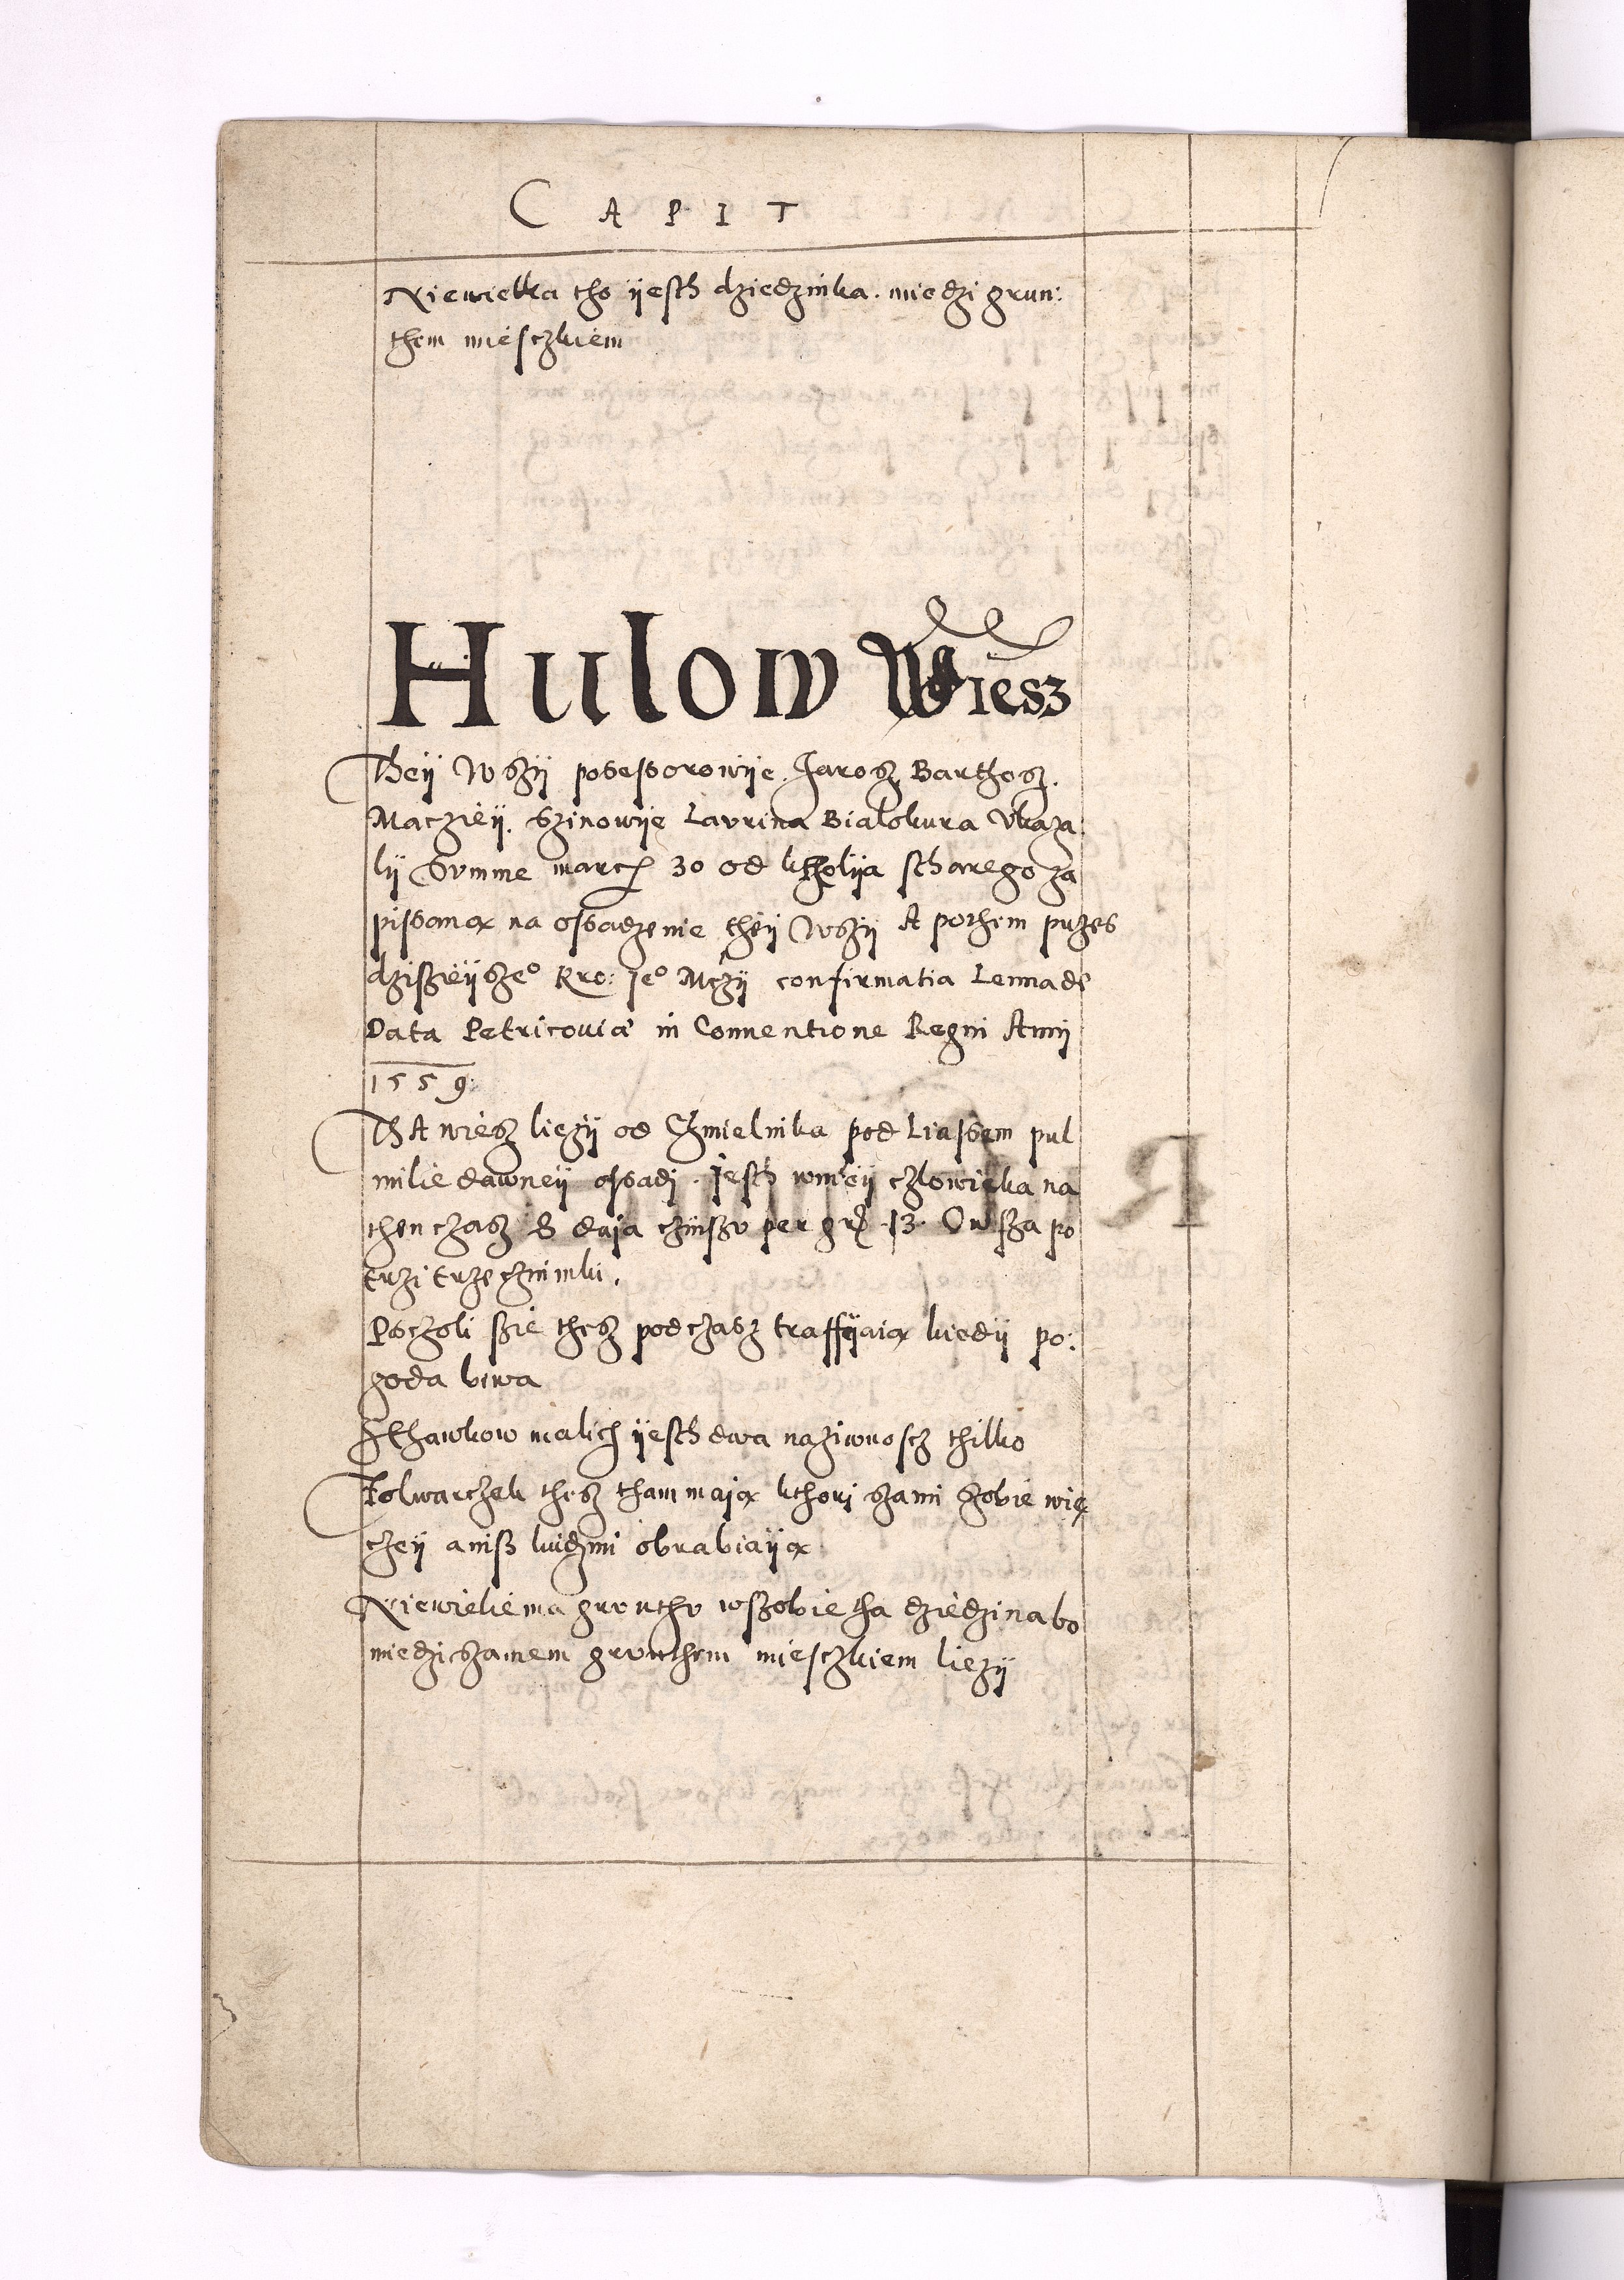 C A P I T
Niewielka tho ijesth dziedzinka. miedzi grun:
them miesczkiem
Hulow Wiesz
Theij Wszij possessorowije. Jarosz Barthosz.
Maczieij. Szinowije Lavrina Bialokura Vkaza
lij Summe marcz 30 od khrolijastharego za
pissana na ossadzenie theij Wszij A pothem przes
dzisieijsze° Kro: Je° Mczij confirmatia Lennads
Data Petricoviæ in Conventione Regni Anni
1559:
ThA wiesz liezij od Chmielnika pod Liassem pul
milie dawneij ossadi. jesth wnieij czlowieka na
then czasz 8 daja czinszv per gr 13. Owsza po
trzi trzecinniki.
Psczoli szie thesz podczasz traffijaia kiedij po:
goda biwa
Sthawkow malich ijesth dwa naziwnoscz thilko
Folwarczek thesz tham maja kthori szami szobie wię
czeij anisz ludzmi obrabiaija
Niewielie ma grvnthv wszobie tha dziedzina bo
miedzi szamem grvnthem miesczkiem liezij